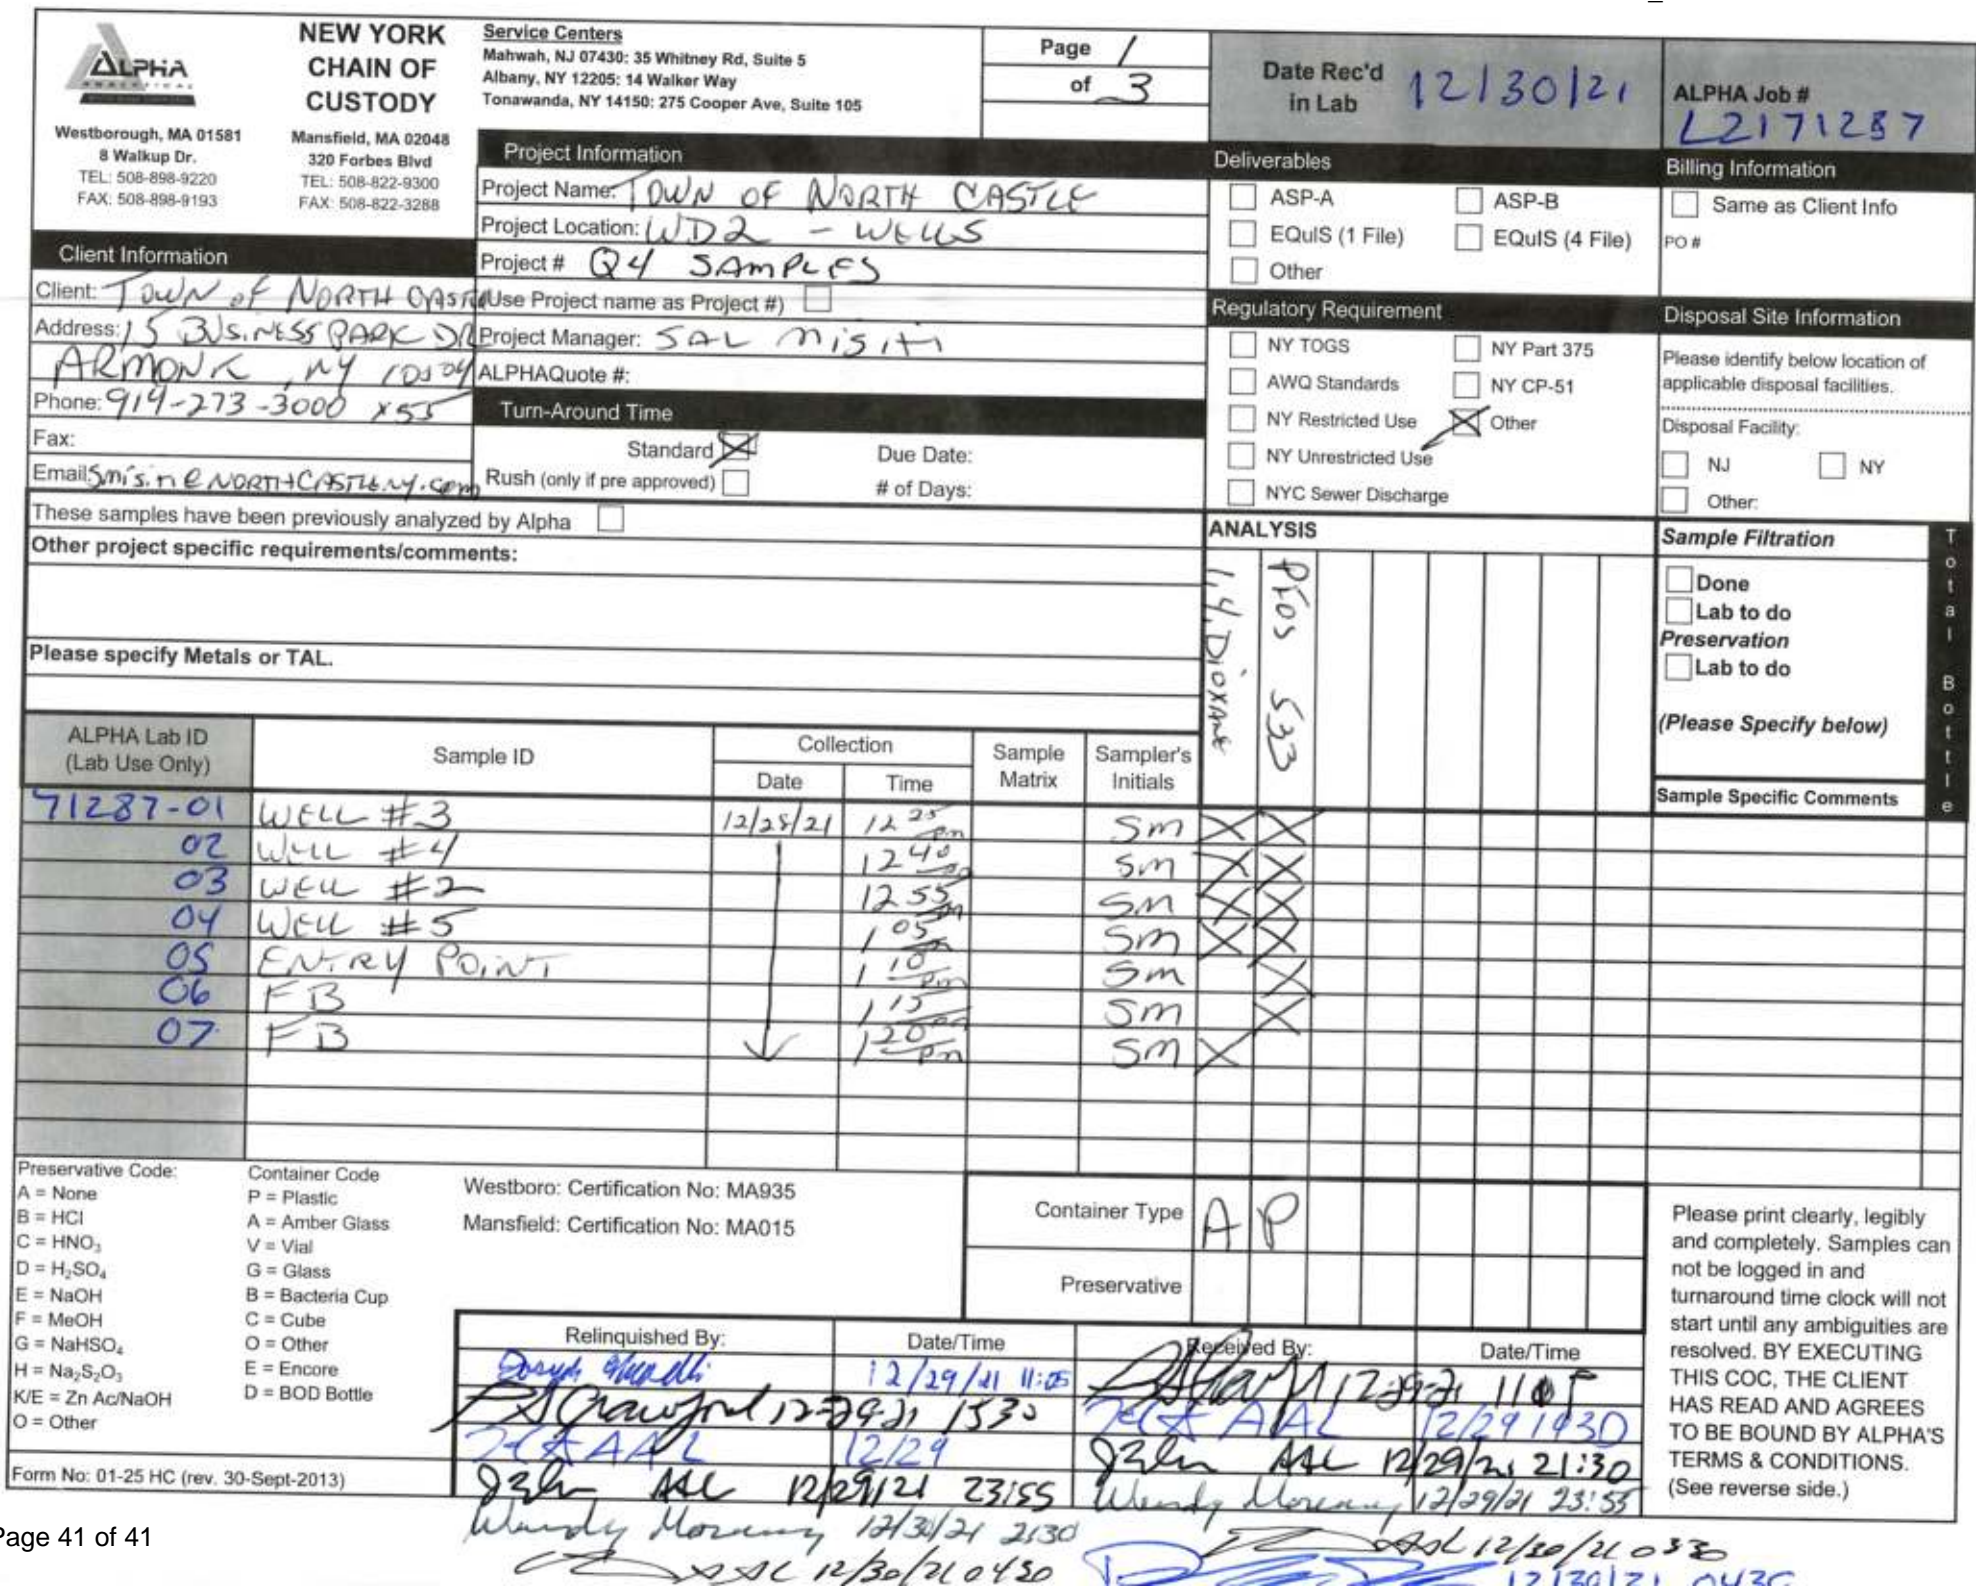 ALPHA
ANALYTICAL
Westborough, MA 01581
8 Walkup Dr.
TEL: 508-898-9220
FAX: 508-898-9193
NEW YORK
CHAIN OF
CUSTODY
Mansfield, MA 02048
320 Forbes Blvd
TEL: 508-822-9300
FAX: 508-822-3288
Service Centers
Mahwah, NJ 07430: 35 Whitney Rd, Suite 5
Albany, NY 12205: 14 Walker Way
Tonawanda, NY 14150: 275 Cooper Ave, Suite 105
Page 1
of 3
Date Rec'd
in Lab 12/30/21
ALPHA Job #
L2171287
Project Information
Project Name: TOWN OF NORTH CASTLE
Project Location: WD2 - WELLS
Project # Q4 SAMPLES
(Use Project name as Project #)
Project Manager: SAL MISITI
ALPHAQuote #:
Client Information
Client: TOWN OF NORTH CASTLE
Address: 15 BUSINESS PARK DR
ARMONK, NY 10504
Phone: 914-273-3000 x55
Fax:
Email:
Turn-Around Time
Standard
Due Date:
Rush (only if pre approved)
# of Days:
Deliverables
ASP-A
ASP-B
EQuIS (1 File)
EQuIS (4 File)
Other
Regulatory Requirement
NY TOGS
NY Part 375
AWQ Standards
NY CP-51
NY Restricted Use
Other
NY Unrestricted Use
NYC Sewer Discharge
Billing Information
Same as Client Info
PO #
Disposal Site Information
Please identify below location of
applicable disposal facilities.
Disposal Facility:
NJ
NY
Other:
These samples have been previously analyzed by Alpha
Other project specific requirements/comments:
Please specify Metals or TAL.
ANALYSIS
1,4, DIOXANE
Pfos 533
Sample Filtration
Done
Lab to do
Preservation
Lab to do
(Please Specify below)
Total Bottle
ALPHA Lab ID
(Lab Use Only)
Sample ID
Collection
Date
Time
Sample
Matrix
Sampler's
Initials
Sample Specific Comments
71287-01 WELL #3 12/28/21 12 25 pm SM X X
02 WELL #4 12 40 pm SM X X
03 WELL #2 12 55 pm SM X X
04 WELL #5 1 05 pm SM X X
05 ENTRY POINT 1 10 pm SM X
06 FB 1 15 pm SM X
07 FB 1 20 pm SM X
Preservative Code:
A = None
B = HCl
C = HNO3
D = H2SO4
E = NaOH
F = MeOH
G = NaHSO4
H = Na2S2O3
K/E = Zn Ac/NaOH
O = Other
Container Code
P = Plastic
A = Amber Glass
V = Vial
G = Glass
B = Bacteria Cup
C = Cube
O = Other
E = Encore
D = BOD Bottle
Westboro: Certification No: MA935
Mansfield: Certification No: MA015
Container Type A P
Preservative
Relinquished By:
Date/Time
Received By:
Date/Time
Joseph 12/29/21 11:05
12-29-21 1105
Crawford 12-29-21 1530
AAL 12/29 1930
AAL 12/29
AAL 12/29/21 21:30
AAL 12/29/21 23:55
Wendy 12/29/21 23:55
Wendy 12/30/21 2130
AAL 12/30/21 0330
AAL 12/30/21 0430
12/30/21 0430
Please print clearly, legibly
and completely. Samples can
not be logged in and
turnaround time clock will not
start until any ambiguities are
resolved. BY EXECUTING
THIS COC, THE CLIENT
HAS READ AND AGREES
TO BE BOUND BY ALPHA'S
TERMS & CONDITIONS.
(See reverse side.)
Form No: 01-25 HC (rev. 30-Sept-2013)
Page 41 of 41